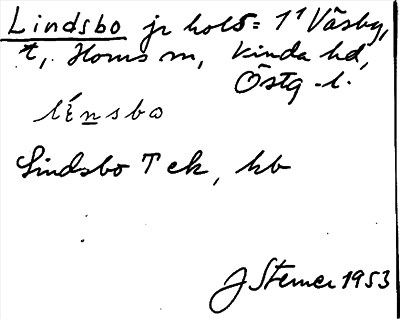 Lindsbo jr hols= 1¹ Väsby,
t, Horns m, Kinda hd,
Östg. l.
línsbo
Lindsbo T ek, kb
J Stemer 1953